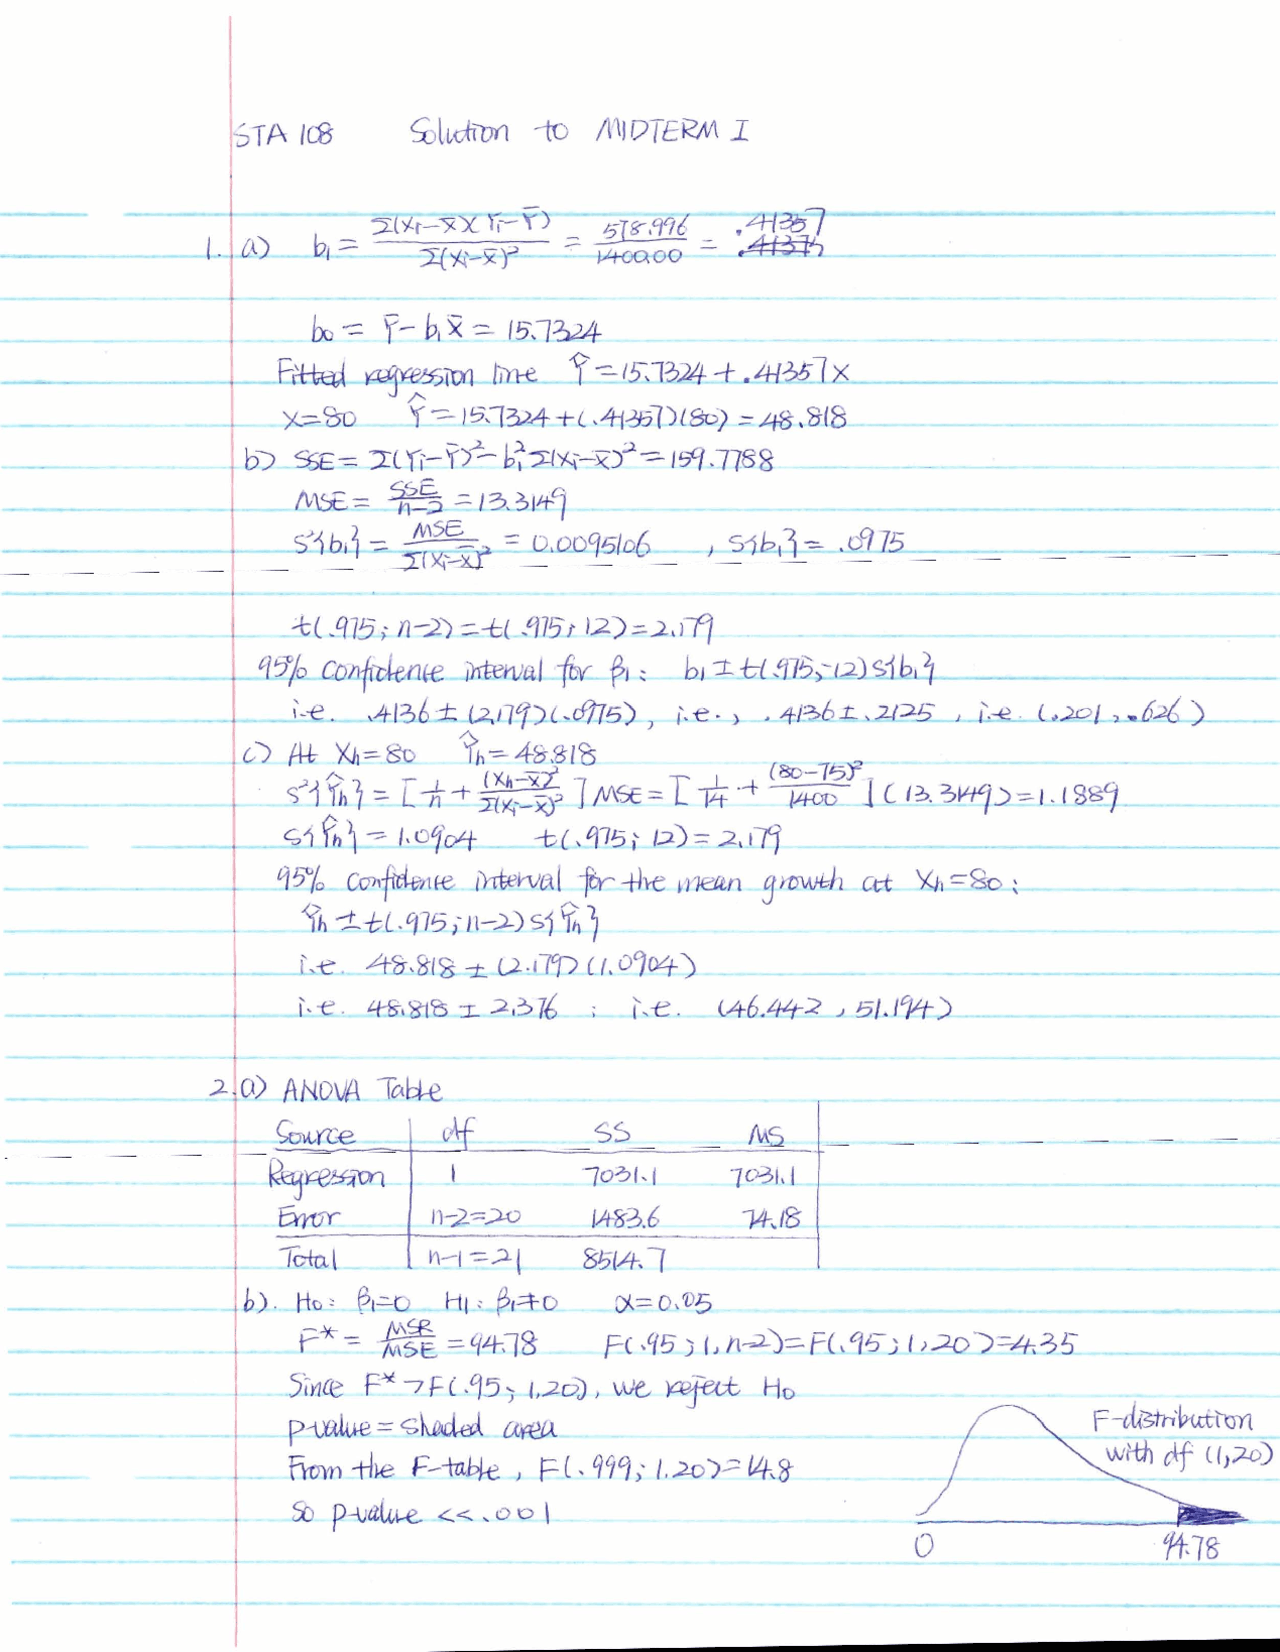 STA 108 Solution to MIDTERM I
1. a) b₁ = Σ(Xi-X̄)(Yi-Ȳ) / Σ(Xi-X̄)² = 578.996 / 1400.00 = .41357
b₀ = Ȳ - b₁X̄ = 15.7324
Fitted regression line Ŷ = 15.7324 + .41357X
X=80 Ŷ = 15.7324 + (.41357)(80) = 48.818
b) SSE = Σ(Yi-Ȳ)² - b₁²Σ(Xi-X̄)² = 159.7788
MSE = SSE / n-2 = 13.3149
s²{b₁} = MSE / Σ(Xi-X̄)² = 0.0095106 , s{b₁} = .0975
t(.975; n-2) = t(.975; 12) = 2.179
95% confidence interval for β₁: b₁ ± t(.975; 12) s{b₁}
i.e. .4136 ± (2.179)(.0975), i.e., .4136 ± .2125, i.e. (.201, .626)
c) At Xh=80 Ŷh = 48.818
s²{Ŷh} = [1/n + (Xh-X̄)²/Σ(Xi-X̄)²] MSE = [1/14 + (80-75)²/1400] (13.3149) = 1.1889
s{Ŷh} = 1.0904 t(.975; 12) = 2.179
95% confidence interval for the mean growth at Xh=80:
Ŷh ± t(.975; n-2) s{Ŷh}
i.e. 48.818 ± (2.179)(1.0904)
i.e. 48.818 ± 2.376 ; i.e. (46.442, 51.194)
2. a) ANOVA Table
Source df SS MS
Regression 1 7031.1 7031.1
Error n-2=20 1483.6 74.18
Total n-1=21 8514.7
b). H₀: β₁=0 H₁: β₁≠0 α=0.05
F* = MSR / MSE = 94.78 F(.95; 1, n-2) = F(.95; 1, 20) = 4.35
Since F* > F(.95; 1,20), we reject H₀
p-value = shaded area
From the F-table, F(.999; 1.20) = 14.8
So p-value << .001
F-distribution
with df (1,20)
0 94.78